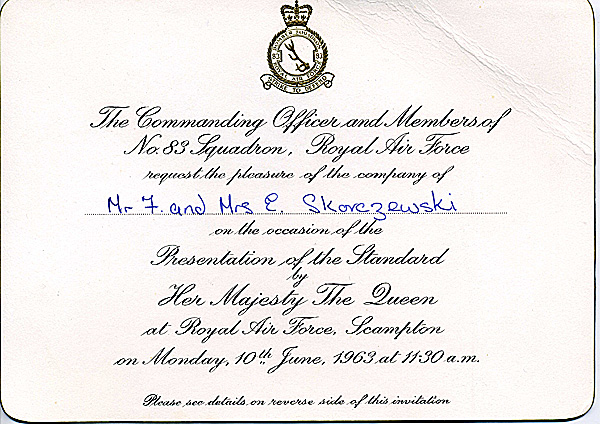 83 83
ROYAL AIR FORCE
STRIKE TO DEFEND
The Commanding Officer and Members of
No. 83 Squadron, Royal Air Force
request the pleasure of the company of
Mr F. and Mrs E. Skorczewski
on the occasion of the
Presentation of the Standard
by
Her Majesty The Queen
at Royal Air Force, Scampton
on Monday, 10th June, 1963 at 11·30 a.m.
Please see details on reverse side of this invitation